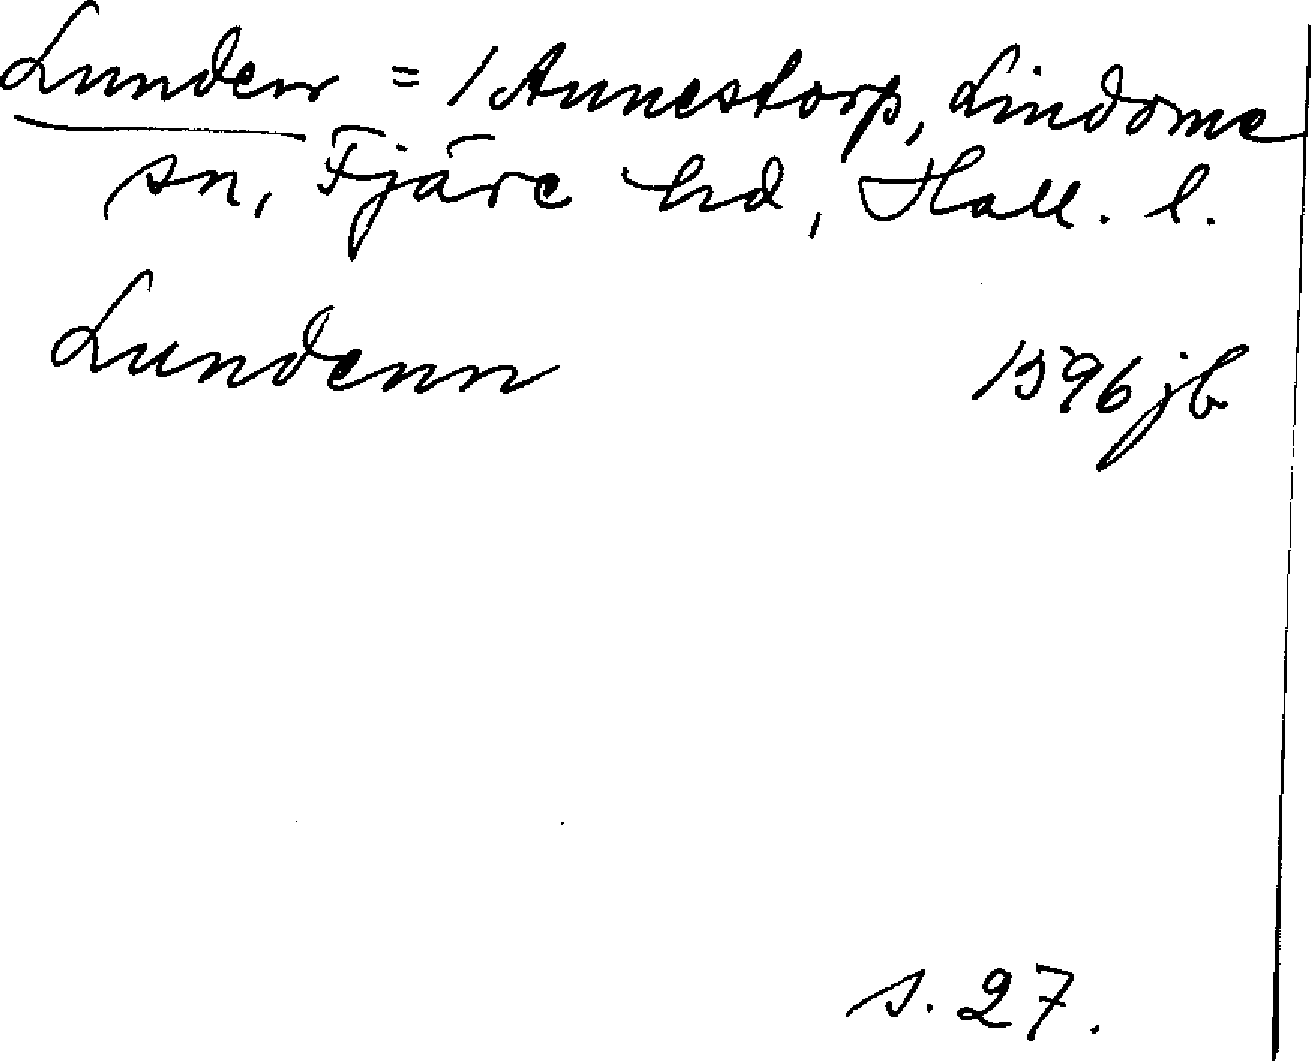 Lunden = / Annestorp, Lindome
sn, Fjäre hd, Hall. l.
Lundenn 1596 jb
s. 27.